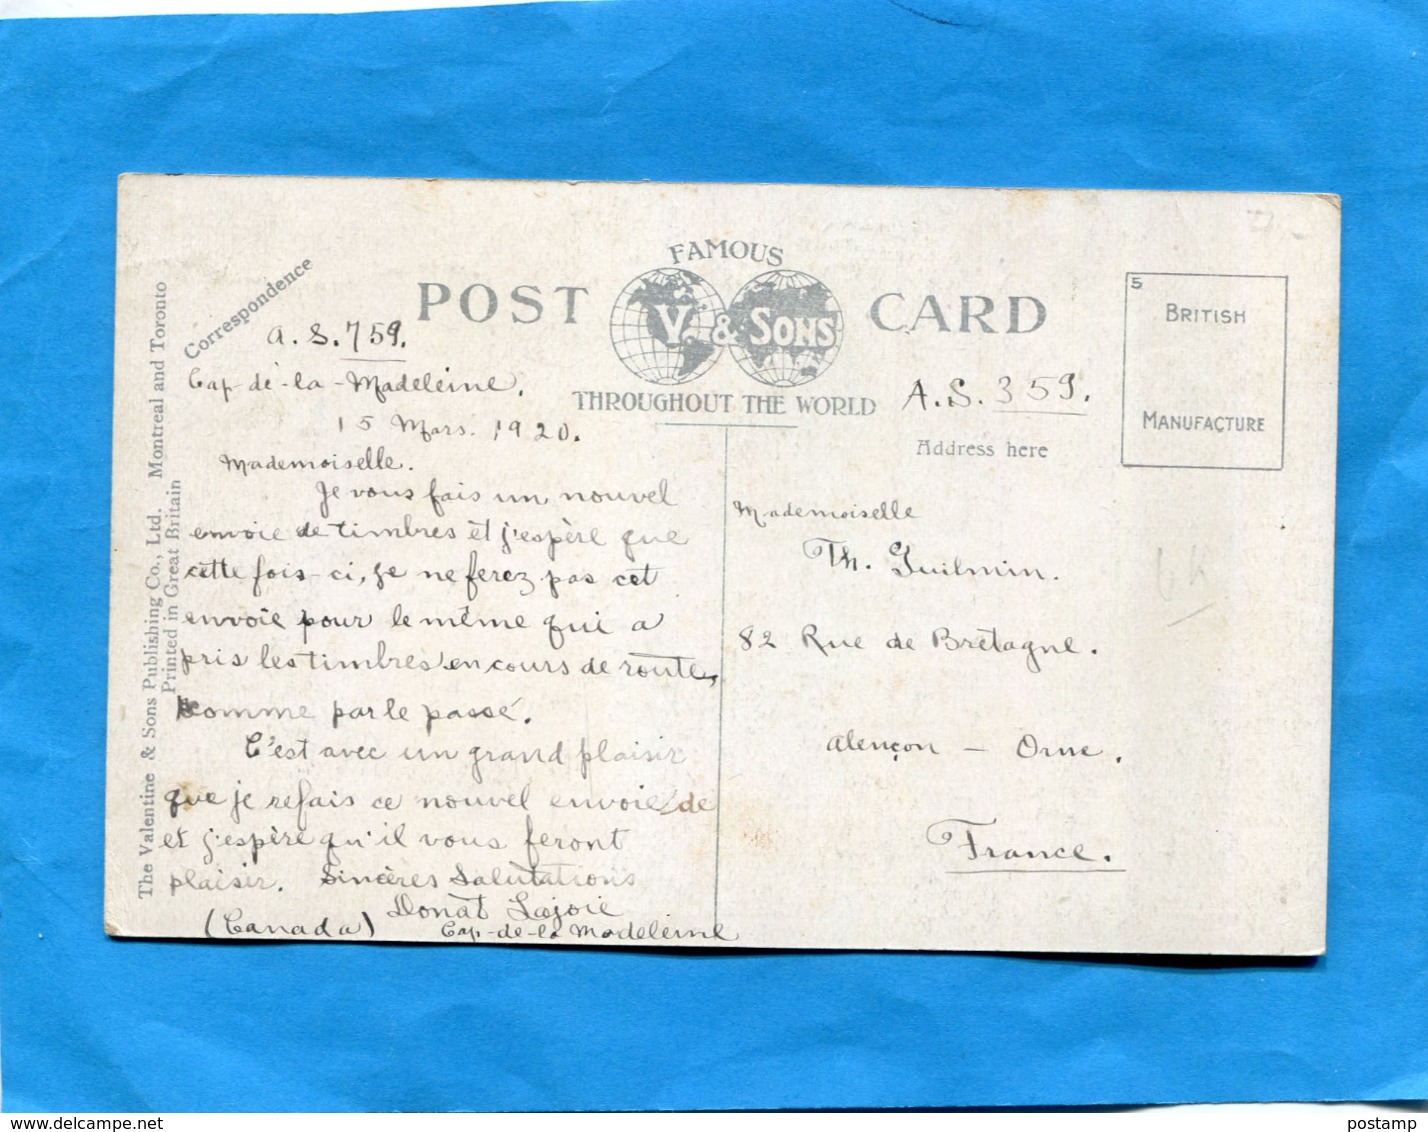 POST CARD
FAMOUS
V. & SONS
THROUGHOUT THE WORLD
Correspondence
The Valentine & Sons Publishing Co., Ltd. Montreal and Toronto
Printed in Great Britain
a. S. 759.
Cap-de-la-Madeleine.
15 Mars. 1920.
Mademoiselle.
Je vous fais un nouvel
envoie de timbres et j'espère que
cette fois-ci, je ne ferez pas cet
envoie pour le même qui a
pris les timbres en cours de route,
comme par le passé.
C'est avec un grand plaisir
que je refais ce nouvel envoie de
et j'espère qu'il vous feront
plaisir. Sincères Salutations
Donat Lajoie
(Canada) Cap-de-la Madeleine
A.S. 359.
Address here
5
BRITISH
MANUFACTURE
Mademoiselle
Th. Guilmin.
82 Rue de Bretagne.
Alençon - Orne.
France.
delcampe.net
postamp